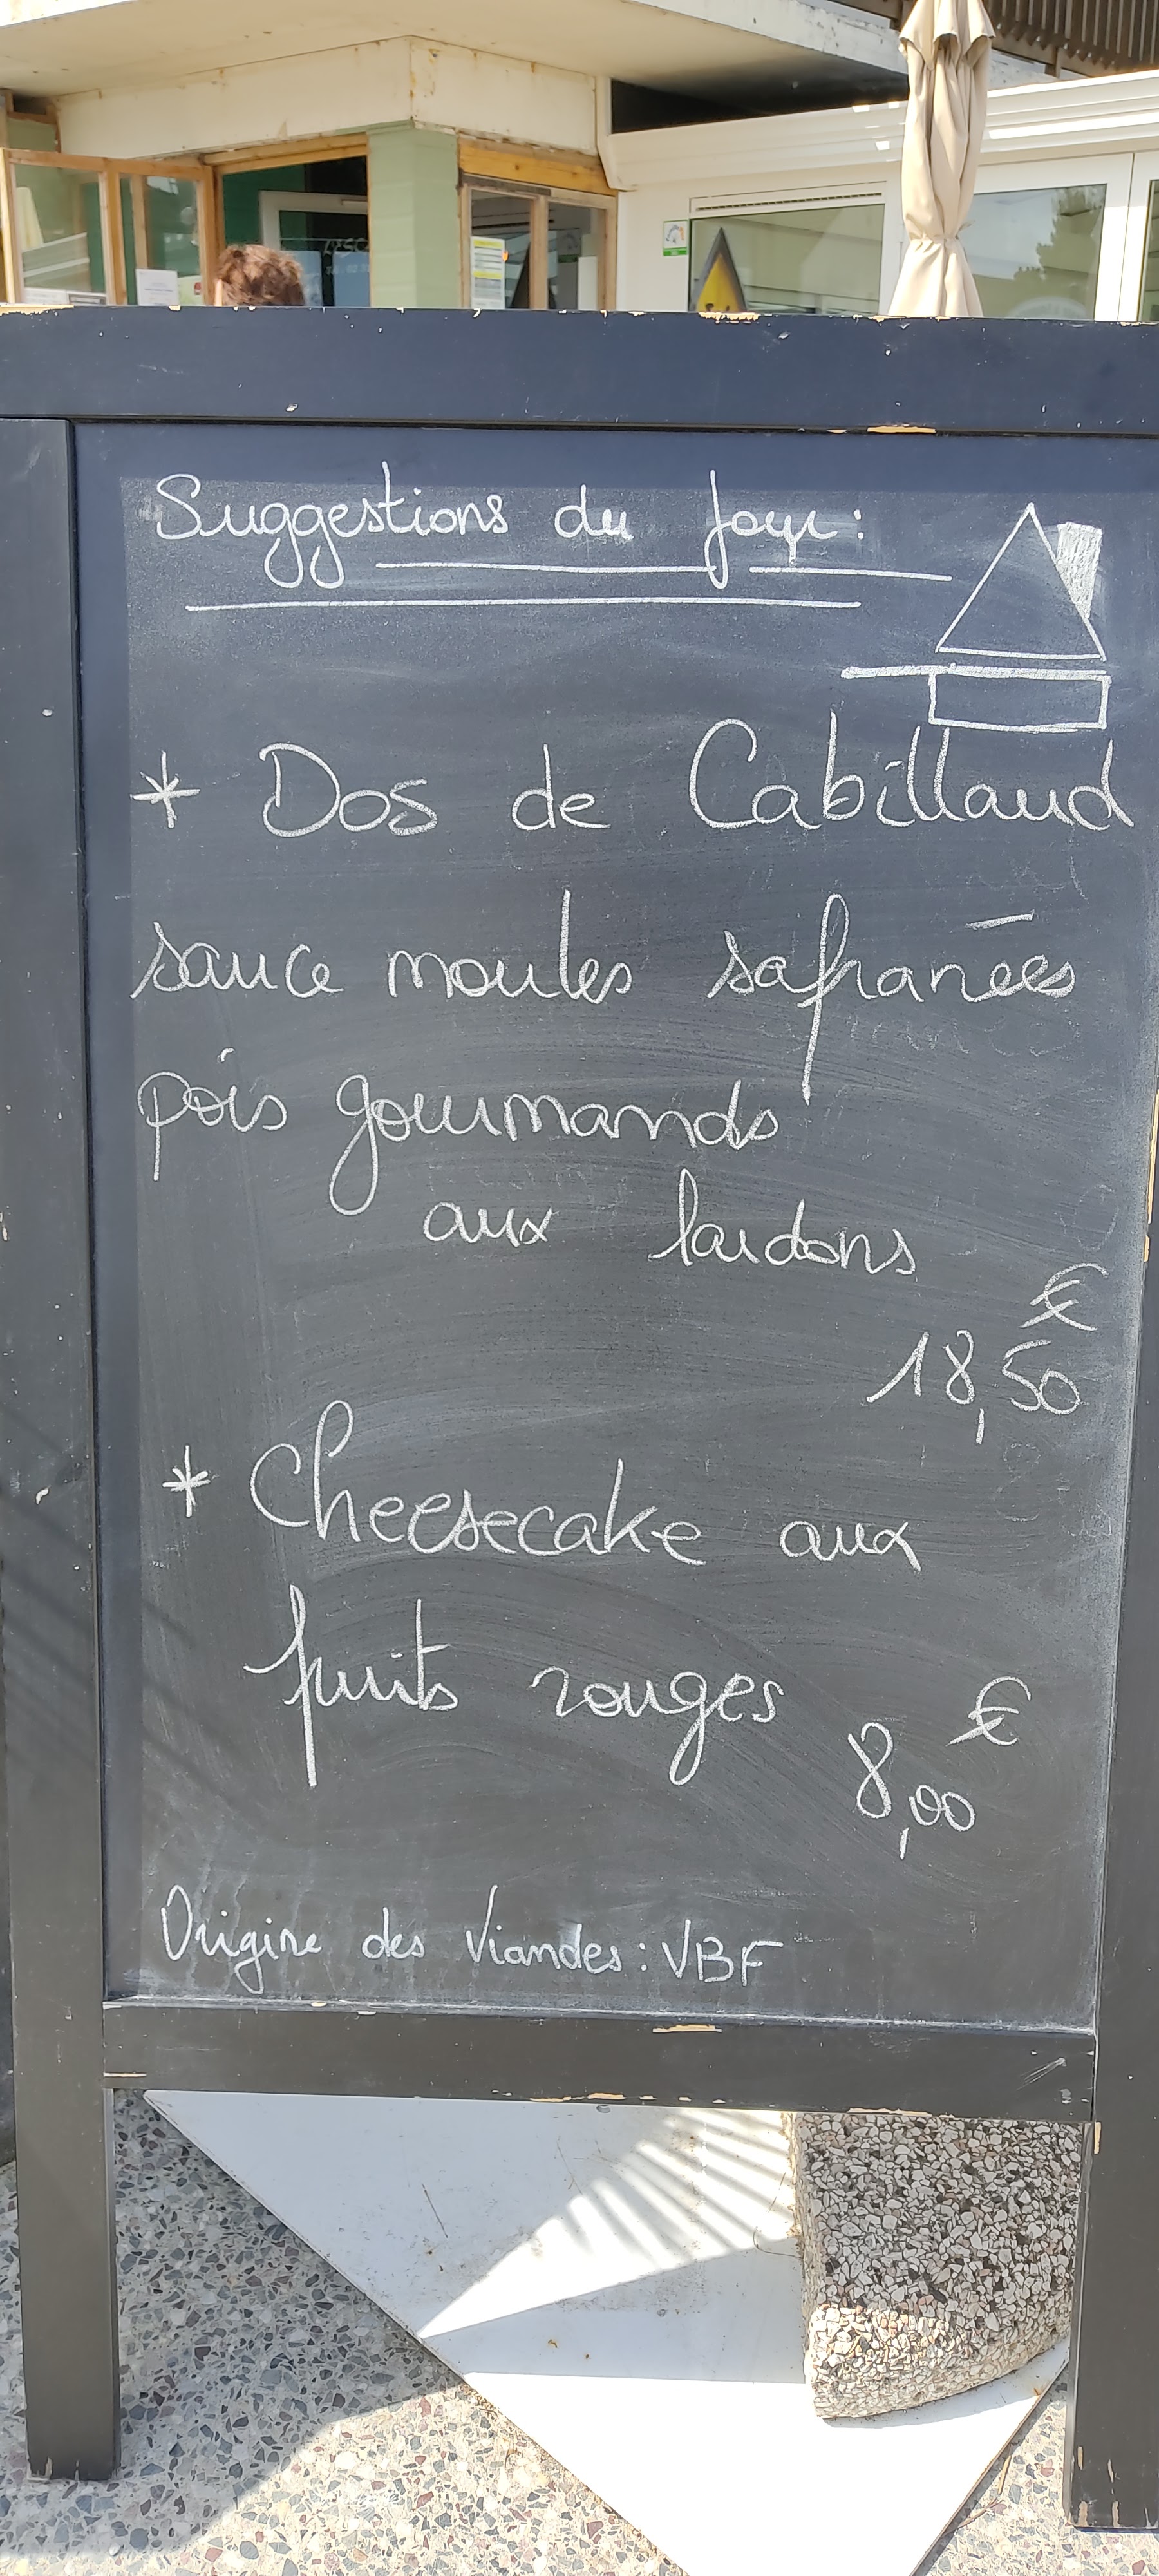 Suggestions du Jour :
* Dos de Cabillaud
sauce moules safranées
pois gourmands
aux lardons
€
18,50
* Cheesecake aux
fruits rouges
€
8,00
Origine des Viandes : VBF